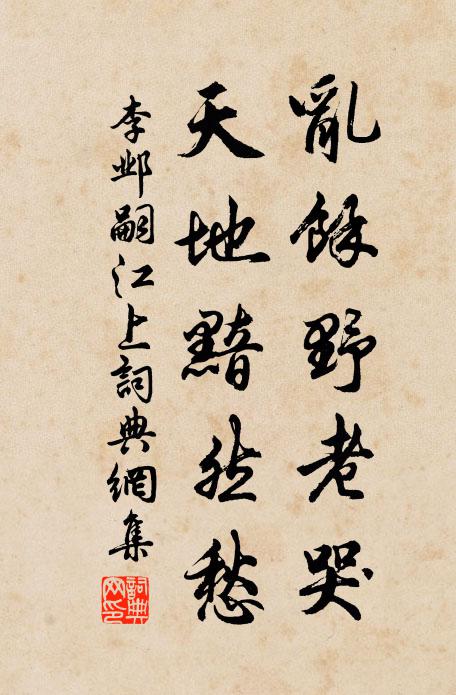 亂餘野老哭
天地黯然愁
李邺嗣江上詞典網集
詞典
文印